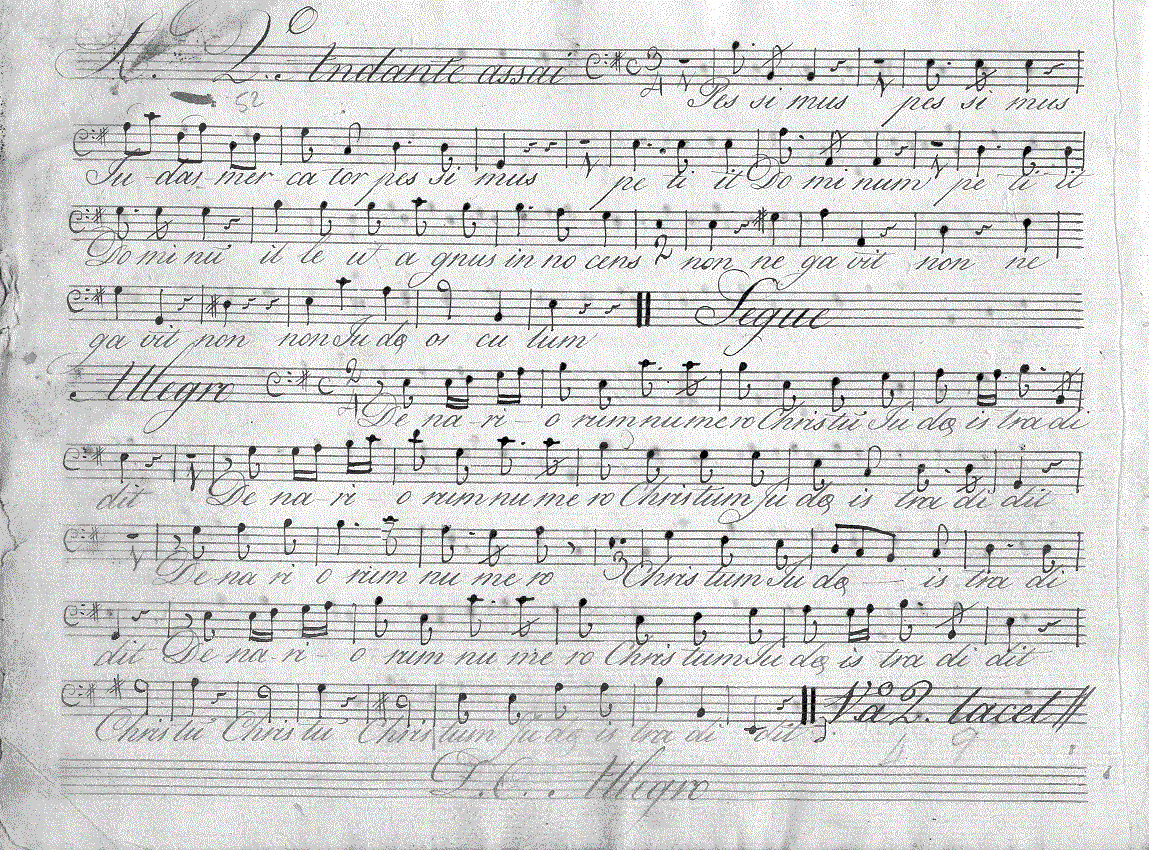 R. 2.º Andante assai C 3/4
Pes si mus pes si mus
52
Ju-das mer ca tor pes si mus pe ti it Do mi num pe ti it
Do mi nũ il le ut a gnus in no cens 2 non ne ga vit non ne
ga vit non non Ju dæ os cu lum Segue
Allegro C 2/4
De na-ri-o rum nu me ro Christũ Ju dæ is tra di
dit De na-ri-o rum nu me ro Christum Ju dæ is tra di dit
De na ri o rum nu me ro 3 Chris tum Ju dæ — is tra di
dit De na-ri-o rum nu me ro Chris tum Ju dæ is tra di dit
Chris tũ Chris tũ Chris tum Ju dæ is tra di dit Vª 2. tacet
D. C. Allegro